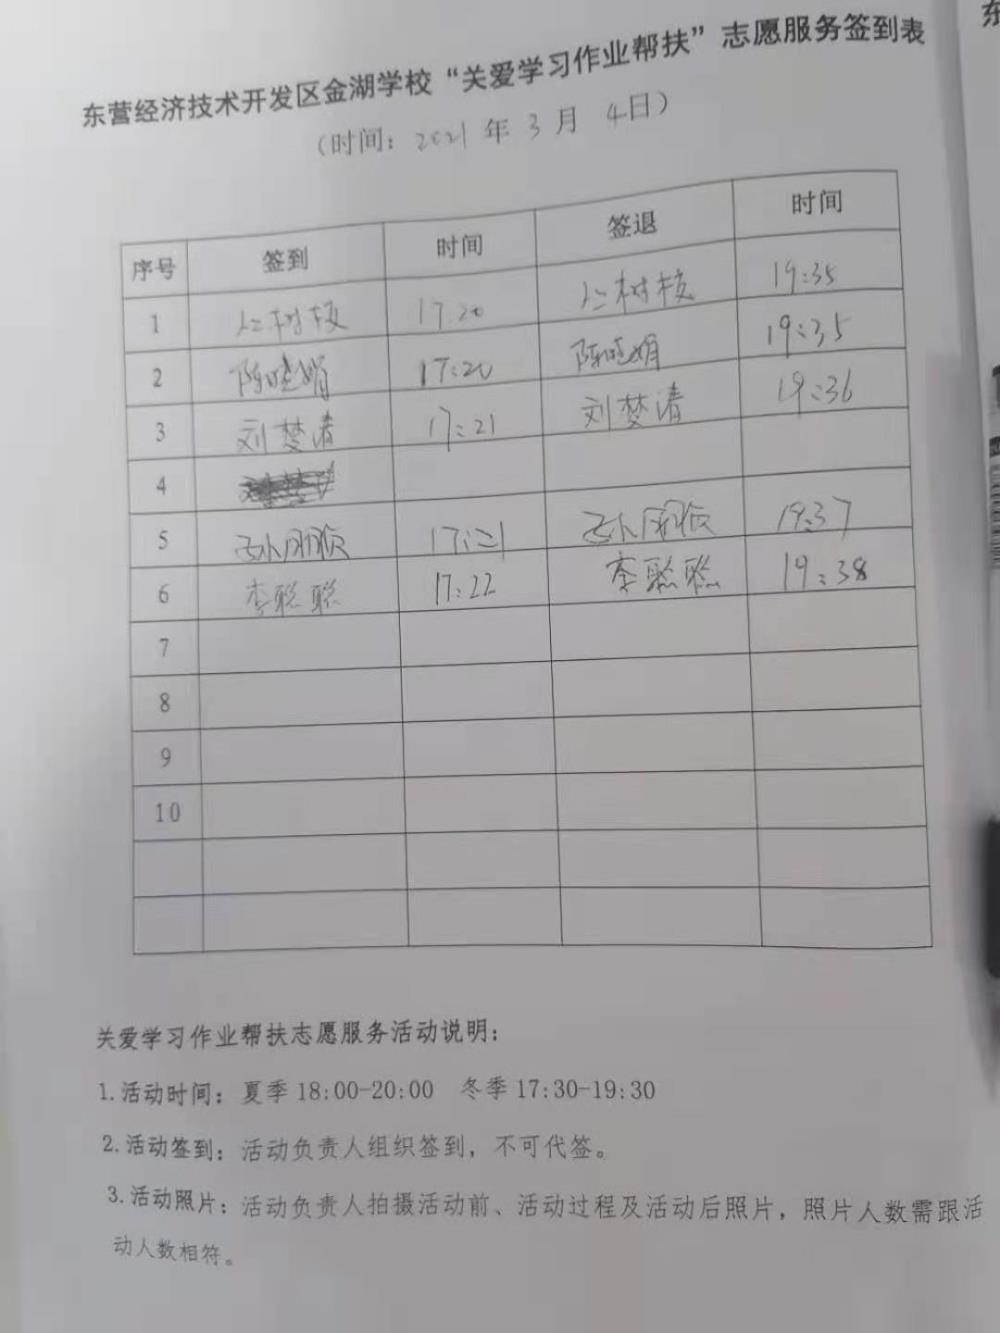 东营经济技术开发区金湖学校“关爱学习作业帮扶”志愿服务签到表
（时间：2021年3月4日）
序号 签到 时间 签退 时间
1 17:20 19:35
2 陈晓娟 17:20 陈晓娟 19:35
3 刘梦清 17:21 刘梦清 19:36
4
5 17:21 19:37
6 李聪聪 17:22 李聪聪 19:38
7
8
9
10
关爱学习作业帮扶志愿服务活动说明：
1.活动时间：夏季18:00-20:00 冬季17:30-19:30
2.活动签到：活动负责人组织签到，不可代签。
3.活动照片：活动负责人拍摄活动前、活动过程及活动后照片，照片人数需跟活
动人数相符。
东